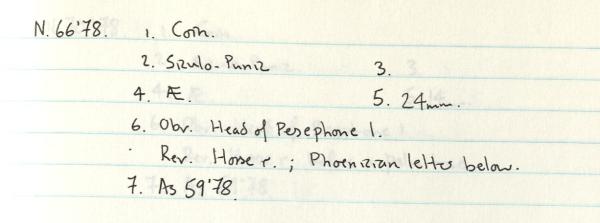 N. 66'78. 1. Coin.
2. Siculo-Punic 3.
4. Æ. 5. 24mm.
6. Obv. Head of Pesephone l.
Rev. Horse r. ; Phoenician letter below.
7. As 59'78.